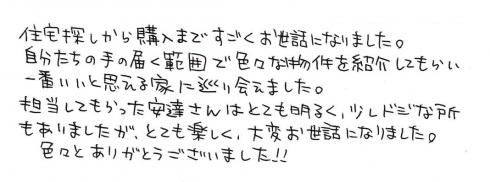 住宅探しから購入まですごくお世話になりました。
自分たちの手の届く範囲で色々な物件を紹介してもらい
一番いいと思える家に巡り会えました。
担当してもらった安達さんはとても明るく、少しドジな所
もありましたが、とても楽しく、大変お世話になりました。
色々とありがとうございました!!